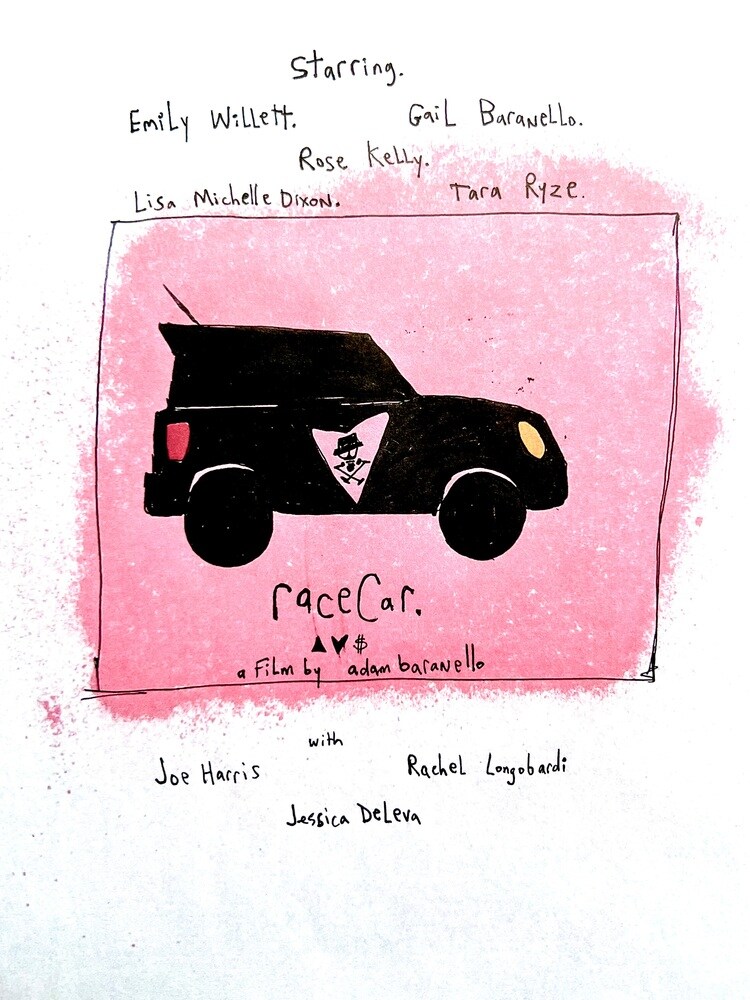 Starring.
Emily Willett. Gail Baranello.
Rose Kelly.
Lisa Michelle Dixon. Tara Ryze.
raceCar.
▲♥$
a Film by adam baranello
with
Joe Harris Rachel Longobardi
Jessica DeLeva